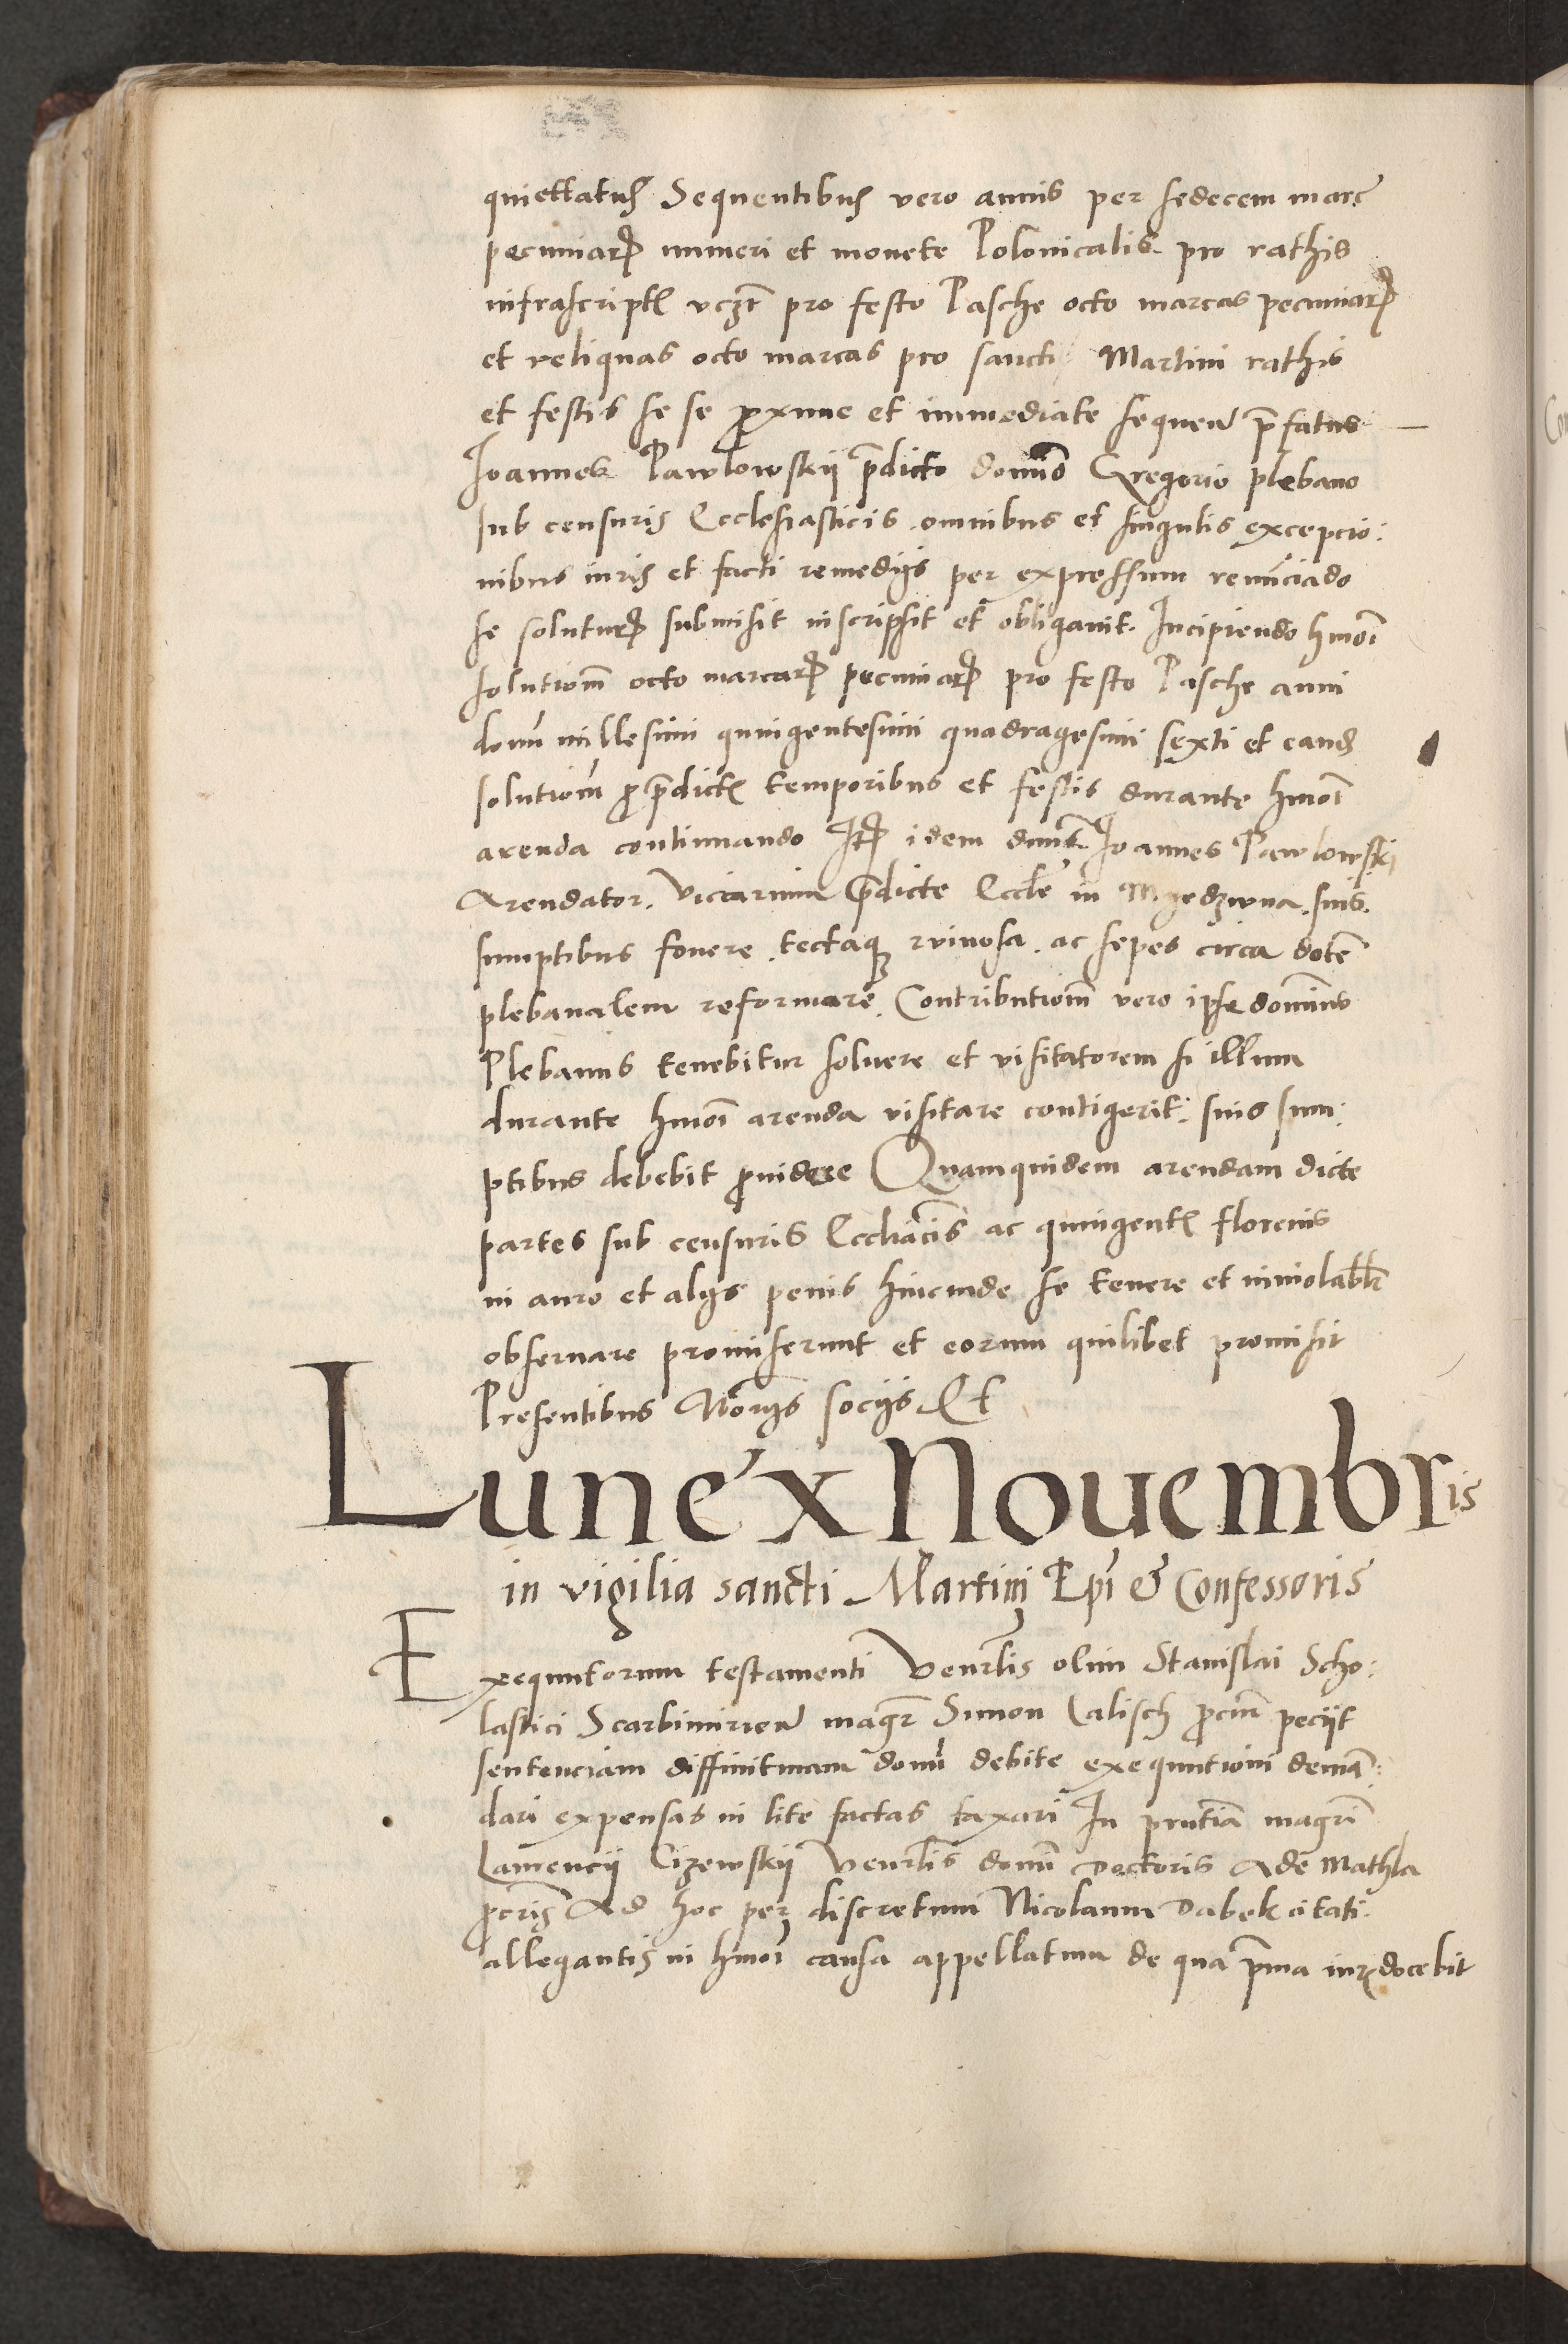 quiettatus Sequentibus vero annis per sedecem marc
pecuniarꝝ numeri et monete Polonicalis. pro rathis
infrascriptꝭ vczt pro festo Pasche octo marcas pecuniarꝝ
et reliquas octo marcas pro sancti Martini rathis
et festis se se ꝓxime et immediate sequen p̄fatus
Ioannes Pawlowskij p̄dicto domino Gregorio plebano
sub censuris Ecclesiasticis. omnibus et singulis excepcio:
nibus iuris et facti remedijs per expressum renūciādo
se soluturꝝ submisit inscripsit et obligauit. Incipiendo hmōi
solutionē octo marcarꝝ pecuniarꝝ pro festo Pasche anni
domī millesimi quingentesimi quadragesimi sexti et eand
solutionē ꝓ p̄dictꝭ temporibus et festis durante hmōi
arenda continuando Itꝫ idem dnus Ioannes Pawlowskj
Arendator. Vicarium p̄dicte Eccle in suis.
sumptibus fouere. tectaqꝫ ruinosa. ac sepes circa dotē
plebanalem reformare. Contributionē vero ipse dominus
Plebanus tenebitur soluere et visitatorem si illum
durante hmōi arenda visitare contigerit: suis sum:
ptibus debebit ꝓuidere Quamquidem arendam dicte
partes sub censuris Eccliacis ac quingentꝭ florenis
in auro et alijs penis hincinde se tenere et inuiolabłr
obseruare promiserunt et eorum quilibet promisit
Presentibus Notrijs socijs Et
Lune x Nouembris
in vigilia sancti Martini Epi & Confessoris
Exequutorum testamenti Venrlis olim Stanislai Scho:
lastici Scarbimirien magr Simon Calisch ꝓcur peciit
sentenciam diffinitiuam domī debite exequutioni demā:
dari expensas in lite factas taxari In pntia magri
Laurencij Cizewskij Venrlis domī Doctoris Ade Mathla
ꝓcris Ad hoc per discretum Nicolaum Dabek citati.
allegantis in hmōi causa appellatum de qua p̄ma iurꝭ docebit